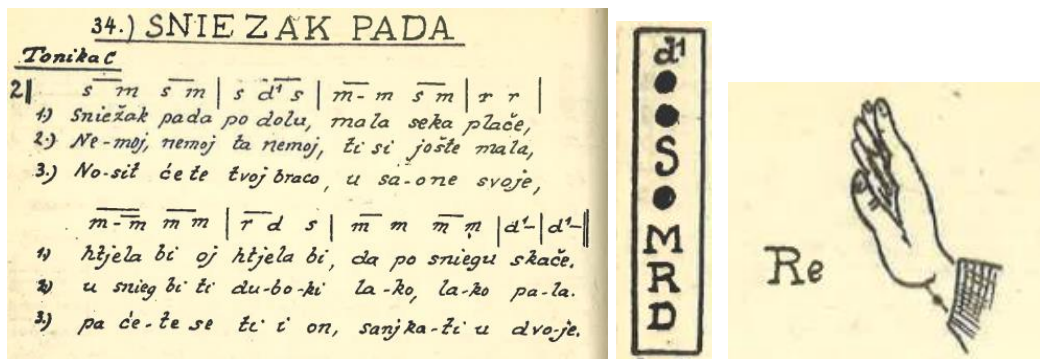 34.) SNIEZAK PADA
Tonika C
2|| s m s m | s d¹ s | m- m s m | r r |
1.) Sniežak pada po dolu, mala seka plače,
2.) Ne-moj, nemoj ta nemoj, ti si jošte mala,
3.) No-sit će te tvoj braco, u sa-one svoje,
m-m m m | r d s | m m m m | d¹- | d¹- ||
1) htjela bi oj htjela bi, da po sniegu skače.
2) u snieg bi ti du-bo-ki la-ko, la-ko pa-la.
3.) pa će-te se ti i on, sanjka-ti u dvo-je.
d¹
S
M
R
D
Re